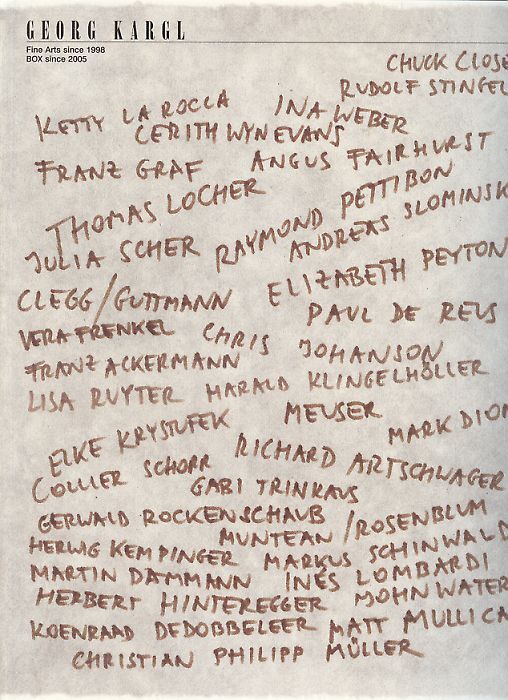 GEORG KARGL
Fine Arts since 1998
BOX since 2005
CHUCK CLOSE
RUDOLF STINGEL
KETTY LA ROCCA INA WEBER
CERITH WYN EVANS
FRANZ GRAF ANGUS FAIRHURST
THOMAS LOCHER RAYMOND PETTIBON
JULIA SCHER ANDREAS SLOMINSK
CLEGG/GUTTMANN ELIZABETH PEYTON
PAUL DE REUS
VERA FRENKEL CHRIS JOHANSON
FRANZ ACKERMANN
LISA RUYTER HARALD KLINGELHÖLLER
MEUSER
ELKE KRYSTUFEK MARK DION
COLLIER SCHORR RICHARD ARTSCHWAGER
GABI TRINKAUS
GERWALD ROCKENSCHAUB
MUNTEAN/ROSENBLUM
HERWIG KEMPINGER MARKUS SCHINWALD
MARTIN DAMMANN INÉS LOMBARDI
HERBERT HINTEREGGER JOHN WATER
KOENRAAD DEDOBBELEER MATT MULLICA
CHRISTIAN PHILIPP MÜLLER